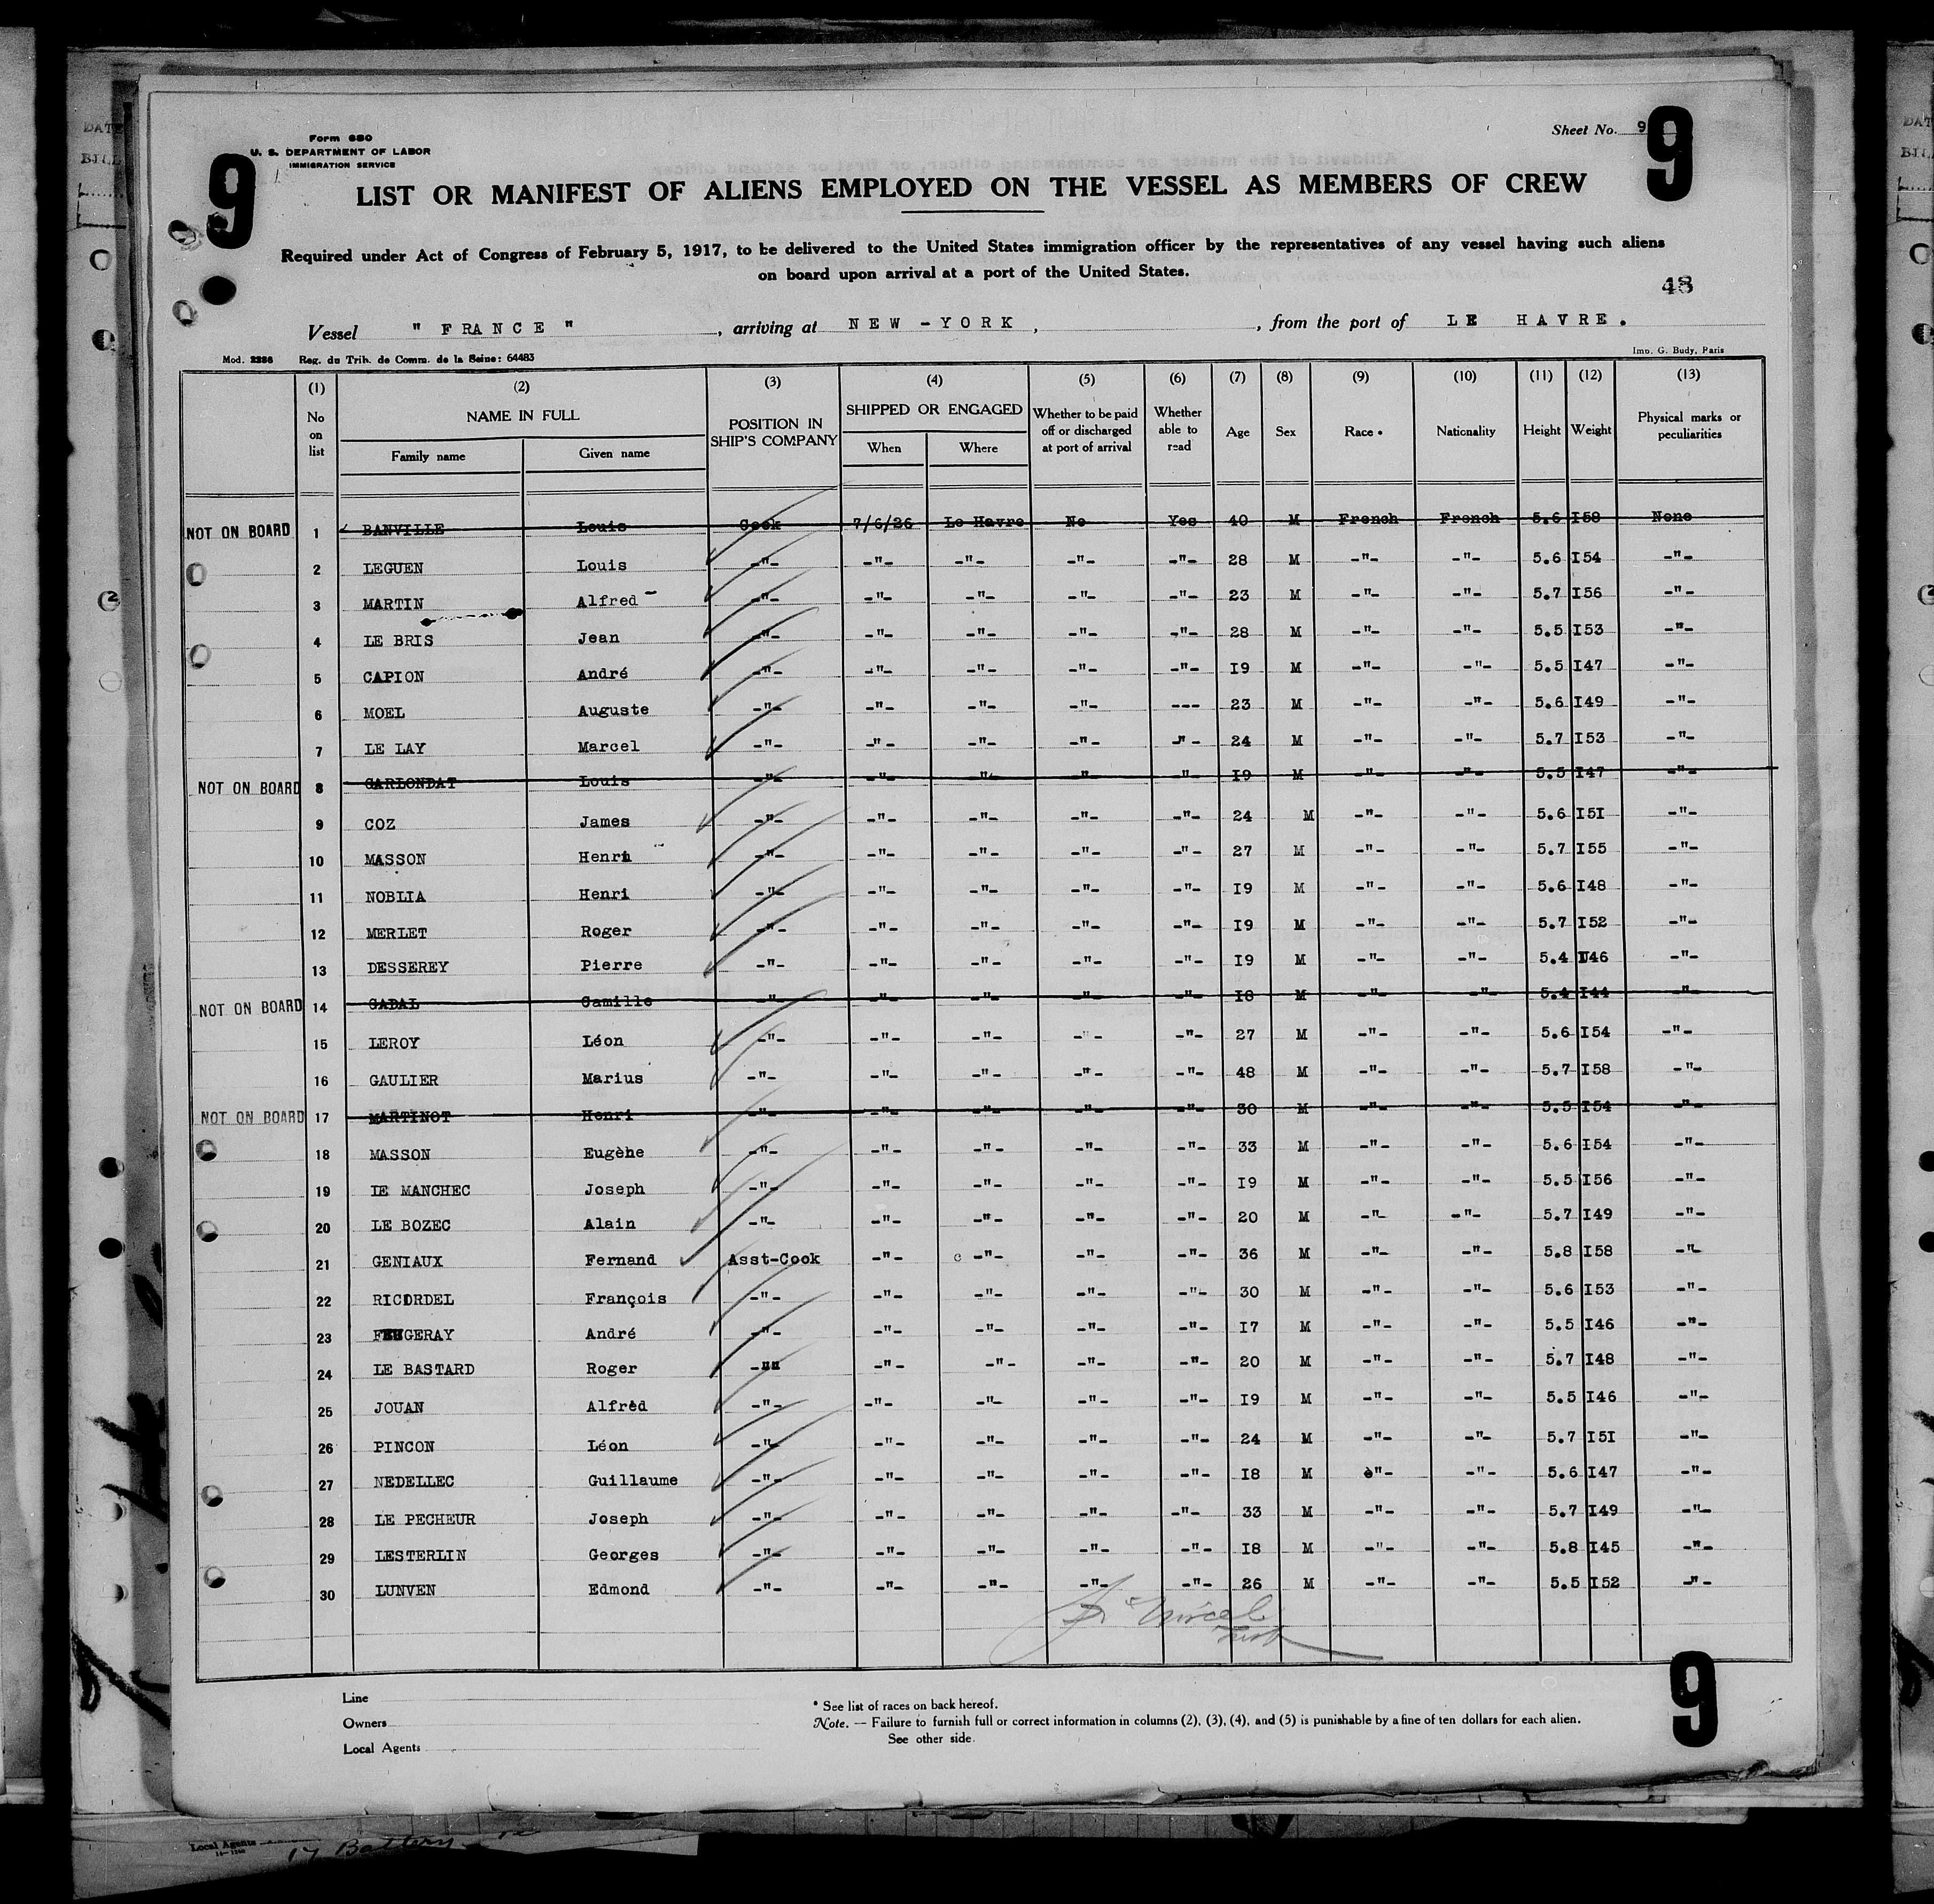 Form 680
U. S. DEPARTMENT OF LABOR
IMMIGRATION SERVICE
Sheet No. 9
9
9
LIST OR MANIFEST OF ALIENS EMPLOYED ON THE VESSEL AS MEMBERS OF CREW
Required under Act of Congress of February 5, 1917, to be delivered to the United States immigration officer by the representatives of any vessel having such aliens
on board upon arrival at a port of the United States.
48
Vessel " FRANCE " , arriving at NEW-YORK , , from the port of LE HAVRE.
Mod. 2286 Reg. du Trib. de Comm. de la Seine: 64483 Imp. G. Budy, Paris
(1) (2) (3) (4) (5) (6) (7) (8) (9) (10) (11) (12) (13)
No on list NAME IN FULL Family name Given name POSITION IN SHIP'S COMPANY SHIPPED OR ENGAGED When Where Whether to be paid off or discharged at port of arrival Whether able to read Age Sex Race * Nationality Height Weight Physical marks or peculiarities
NOT ON BOARD 1 BANVILLE Louis Cook 7/6/26 Le Havre No Yes 40 M French French 5.6 I58 None
2 LEGUEN Louis -"- -"- -"- -"- -"- 28 M -"- -"- 5.6 I54 -"-
3 MARTIN Alfred -"- -"- -"- -"- -"- 23 M -"- -"- 5.7 I56 -"-
4 LE BRIS Jean -"- -"- -"- -"- -"- 28 M -"- -"- 5.5 I53 -"-
5 CAPION André -"- -"- -"- -"- -"- I9 M -"- -"- 5.5 I47 -"-
6 MOEL Auguste -"- -"- -"- -"- --- 23 M -"- -"- 5.6 I49 -"-
7 LE LAY Marcel -"- -"- -"- -"- -"- 24 M -"- -"- 5.7 I53 -"-
NOT ON BOARD 8 CARLONDAT Louis -"- -"- -"- -"- -"- I9 M -"- -"- 5.5 I47 -"-
9 COZ James -"- -"- -"- -"- -"- 24 M -"- -"- 5.6 I5I -"-
10 MASSON Henri -"- -"- -"- -"- -"- 27 M -"- -"- 5.7 I55 -"-
11 NOBLIA Henri -"- -"- -"- -"- -"- I9 M -"- -"- 5.6 I48 -"-
12 MERLET Roger -"- -"- -"- -"- -"- I9 M -"- -"- 5.7 I52 -"-
13 DESSEREY Pierre -"- -"- -"- -"- -"- I9 M -"- -"- 5.4 I46 -"-
NOT ON BOARD 14 CADAL Camille -"- -"- -"- -"- -"- I8 M -"- -"- 5.4 I44 -"-
15 LEROY Léon -"- -"- -"- -"- -"- 27 M -"- -"- 5.6 I54 -"-
16 GAULIER Marius -"- -"- -"- -"- -"- 48 M -"- -"- 5.7 I58 -"-
NOT ON BOARD 17 MARTINOT Henri -"- -"- -"- -"- -"- 30 M -"- -"- 5.5 I54 -"-
18 MASSON Eugène -"- -"- -"- -"- -"- 33 M -"- -"- 5.6 I54 -"-
19 LE MANCHEC Joseph -"- -"- -"- -"- -"- I9 M -"- -"- 5.5 I56 -"-
20 LE BOZEC Alain -"- -"- -"- -"- -"- 20 M -"- -"- 5.7 I49 -"-
21 GENIAUX Fernand Asst-Cook -"- c -"- -"- -"- 36 M -"- -"- 5.8 I58 -"-
22 RICORDEL François -"- -"- -"- -"- -"- 30 M -"- -"- 5.6 I53 -"-
23 FEUGERAY André -"- -"- -"- -"- -"- I7 M -"- -"- 5.5 I46 -"-
24 LE BASTARD Roger -"" -"- -"- -"- -"- 20 M -"- -"- 5.7 I48 -"-
25 JOUAN Alfréd -"- -"- -"- -"- -"- I9 M -"- -"- 5.5 I46 -"-
26 PINCON Léon -"- -"- -"- -"- -"- 24 M -"- -"- 5.7 I5I -"-
27 NEDELLEC Guillaume -"- -"- -"- -"- -"- I8 M è"- -"- 5.6 I47 -"-
28 LE PECHEUR Joseph -"- -"- -"- -"- -"- 33 M -"- -"- 5.7 I49 -"-
29 LESTERLIN Georges -"- -"- -"- -"- -"- I8 M -"- -"- 5.8 I45 -"-
30 LUNVEN Edmond -"- -"- -"- -"- -"- 26 M -"- -"- 5.5 I52 -"-
Line
Owners
Local Agents
* See list of races on back hereof.
Note. — Failure to furnish full or correct information in columns (2), (3), (4), and (5) is punishable by a fine of ten dollars for each alien.
See other side.
9
Local Agents
17 Battery